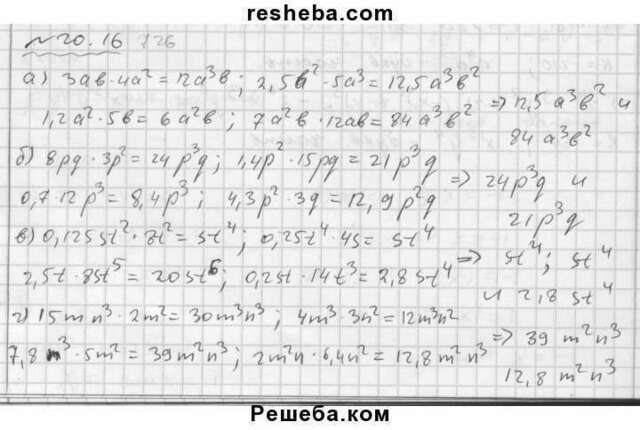 resheba.com
№20.16 726
а) 3ab·4a² = 12a³b; 2,5b²·5a³ = 12,5a³b²
1,2a²·5b = 6a²b; 7a²b·12ab = 84a³b² ⇒ 12,5a³b² и
84a³b²
б) 8pq·3p² = 24p³q; 1,4p²·15pq = 21p³q
0,7·12p³ = 8,4p³; 4,3p²·3q = 12,9p²q ⇒ 24p³q и
21p³q
в) 0,125st²·8t² = st⁴; 0,25t⁴·4s = st⁴
2,5t·8st⁵ = 20st⁶; 0,2st·14t³ = 2,8st⁴ ⇒ st⁴; st⁴
и 2,8st⁴
г) 15mn³·2m² = 30m³n³; 4m³·3n² = 12m³n²
7,8n³·5m² = 39m²n³; 2m²n·6,4n² = 12,8m²n³ ⇒ 39m²n³
12,8m²n³
Решеба.ком